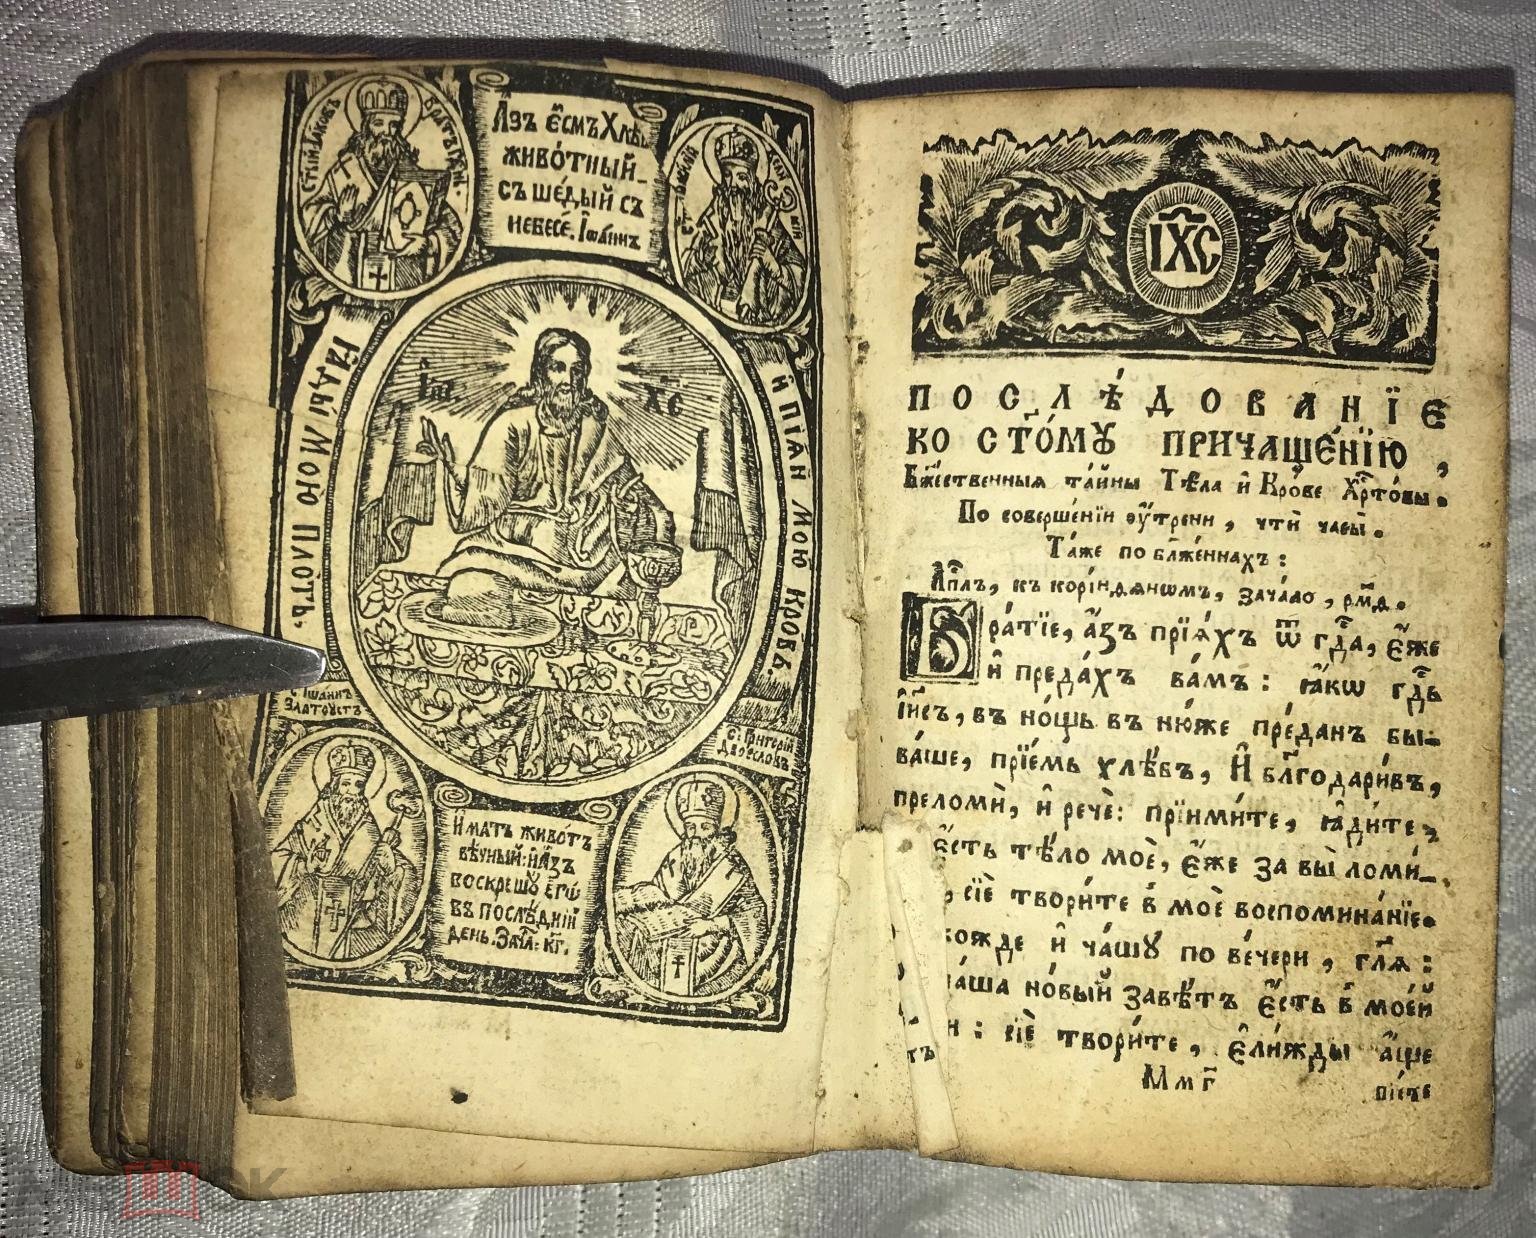 СТЫЙ ІАКОВЪ
БРАТЪ ГДНЬ.
Азъ є҆́смъ Хлѣ
живо́тный
съше́дый съ
небесѐ. Іѡ҆а́ннъ
Ꙗ҆ды́й Мою Пло́ть.
И҆ ПІѦЙ МОЮ КРОВЬ.
І҆и҃.
Х҃с
С: Іѡаннъ
Златоустъ
С: Григорій
Двоесловъ
И҆мать живо́тъ
вѣчный: и҆ а҆́зъ
воскрешꙋ̀ є҆го̀
въ послѣ́дній
день. Зач҃л: к҃г.
ІХ҃С
ПОСЛѢ́ДОВАНЇЕ
КО СТО́МꙊ ПРИЧАЩЕ́НЇЮ,
Бж҃е́ственныя та́йны Тѣ́ла и҆ Кро́ве Хр҃то́вы.
По соверше́нїи оу҆́трени, чтѝ часы̀.
Та́же по бл҃же́ннахъ:
А҆п҃лъ, къ корі́нѳѧнѡмъ, зача́ло, рм҃ѳ.
Бра́тїе, а҆́зъ прїѧ́хъ ѿ гд҃а, є҆́же
и҆ преда́хъ ва́мъ: ꙗ҆́кѡ гд҃ь
і҆и҃съ, въ но́щь въ ню́же пре́данъ бы-
ва́ше, прїе́мь хлѣ́бъ, И҆ бл҃годари́въ,
преломѝ, и҆ речѐ: прїими́те, ꙗ҆ди́те,
є҆́сть тѣ́ло моѐ, є҆́же за вы̀ ломи́-
, сїѐ твори́те в̾ моѐ воспомина́нїе.
кожде и҆ ча́шꙋ по ве́чери, гл҃ѧ:
ча́ша но́вый завѣ́тъ є҆́сть в̾ мое́й
и: сїѐ твори́те, є҆ли́жды а҆́ще
Ммг҃
пїе́те